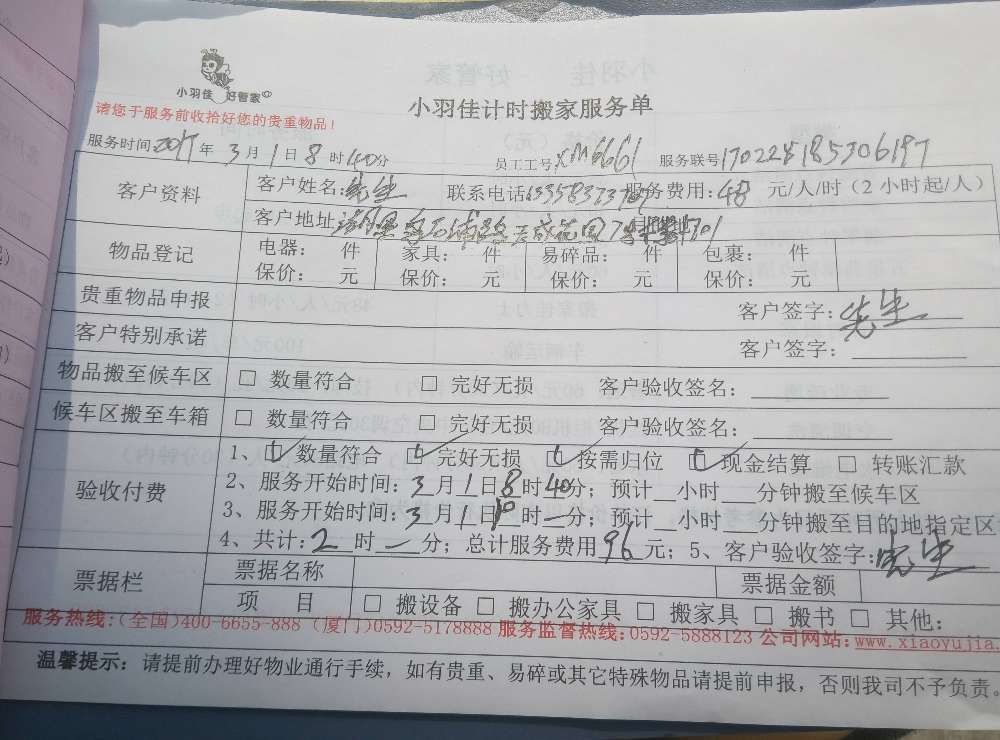 小羽佳 好管家
小羽佳计时搬家服务单
请您于服务前收拾好您的贵重物品!
服务时间2017年3月1日8时40分 员工工号XM6661 服务联号170228185306197
客户资料 客户姓名:先生 联系电话 服务费用:48元/人/时(2小时起/人)
客户地址:
物品登记 电器: 件 家具: 件 易碎品: 件 包裹: 件
保价: 元 保价: 元 保价: 元 保价: 元
贵重物品申报 客户签字:先生
客户特别承诺 客户签字:
物品搬至候车区 □ 数量符合 □ 完好无损 客户验收签名:
候车区搬至车箱 □ 数量符合 □ 完好无损 客户验收签名:
验收付费 1、☑数量符合 ☑完好无损 ☑按需归位 ☑现金结算 □ 转账汇款
2、服务开始时间:3月1日8时40分;预计__小时___分钟搬至候车区
3、服务开始时间:3月1日 时一分;预计__小时___分钟搬至目的地指定区
4、共计:2时一分;总计服务费用96元;5、客户验收签字:先生
票据栏 票据名称 票据金额
项 目 □ 搬设备 □ 搬办公家具 □ 搬家具 □ 搬书 □ 其他:
服务热线:(全国)400-6655-888 (厦门)0592-5178888 服务监督热线:0592-5888123 公司网站:www.xiaoyujia.
温馨提示:请提前办理好物业通行手续,如有贵重、易碎或其它特殊物品请提前申报,否则我司不予负责。